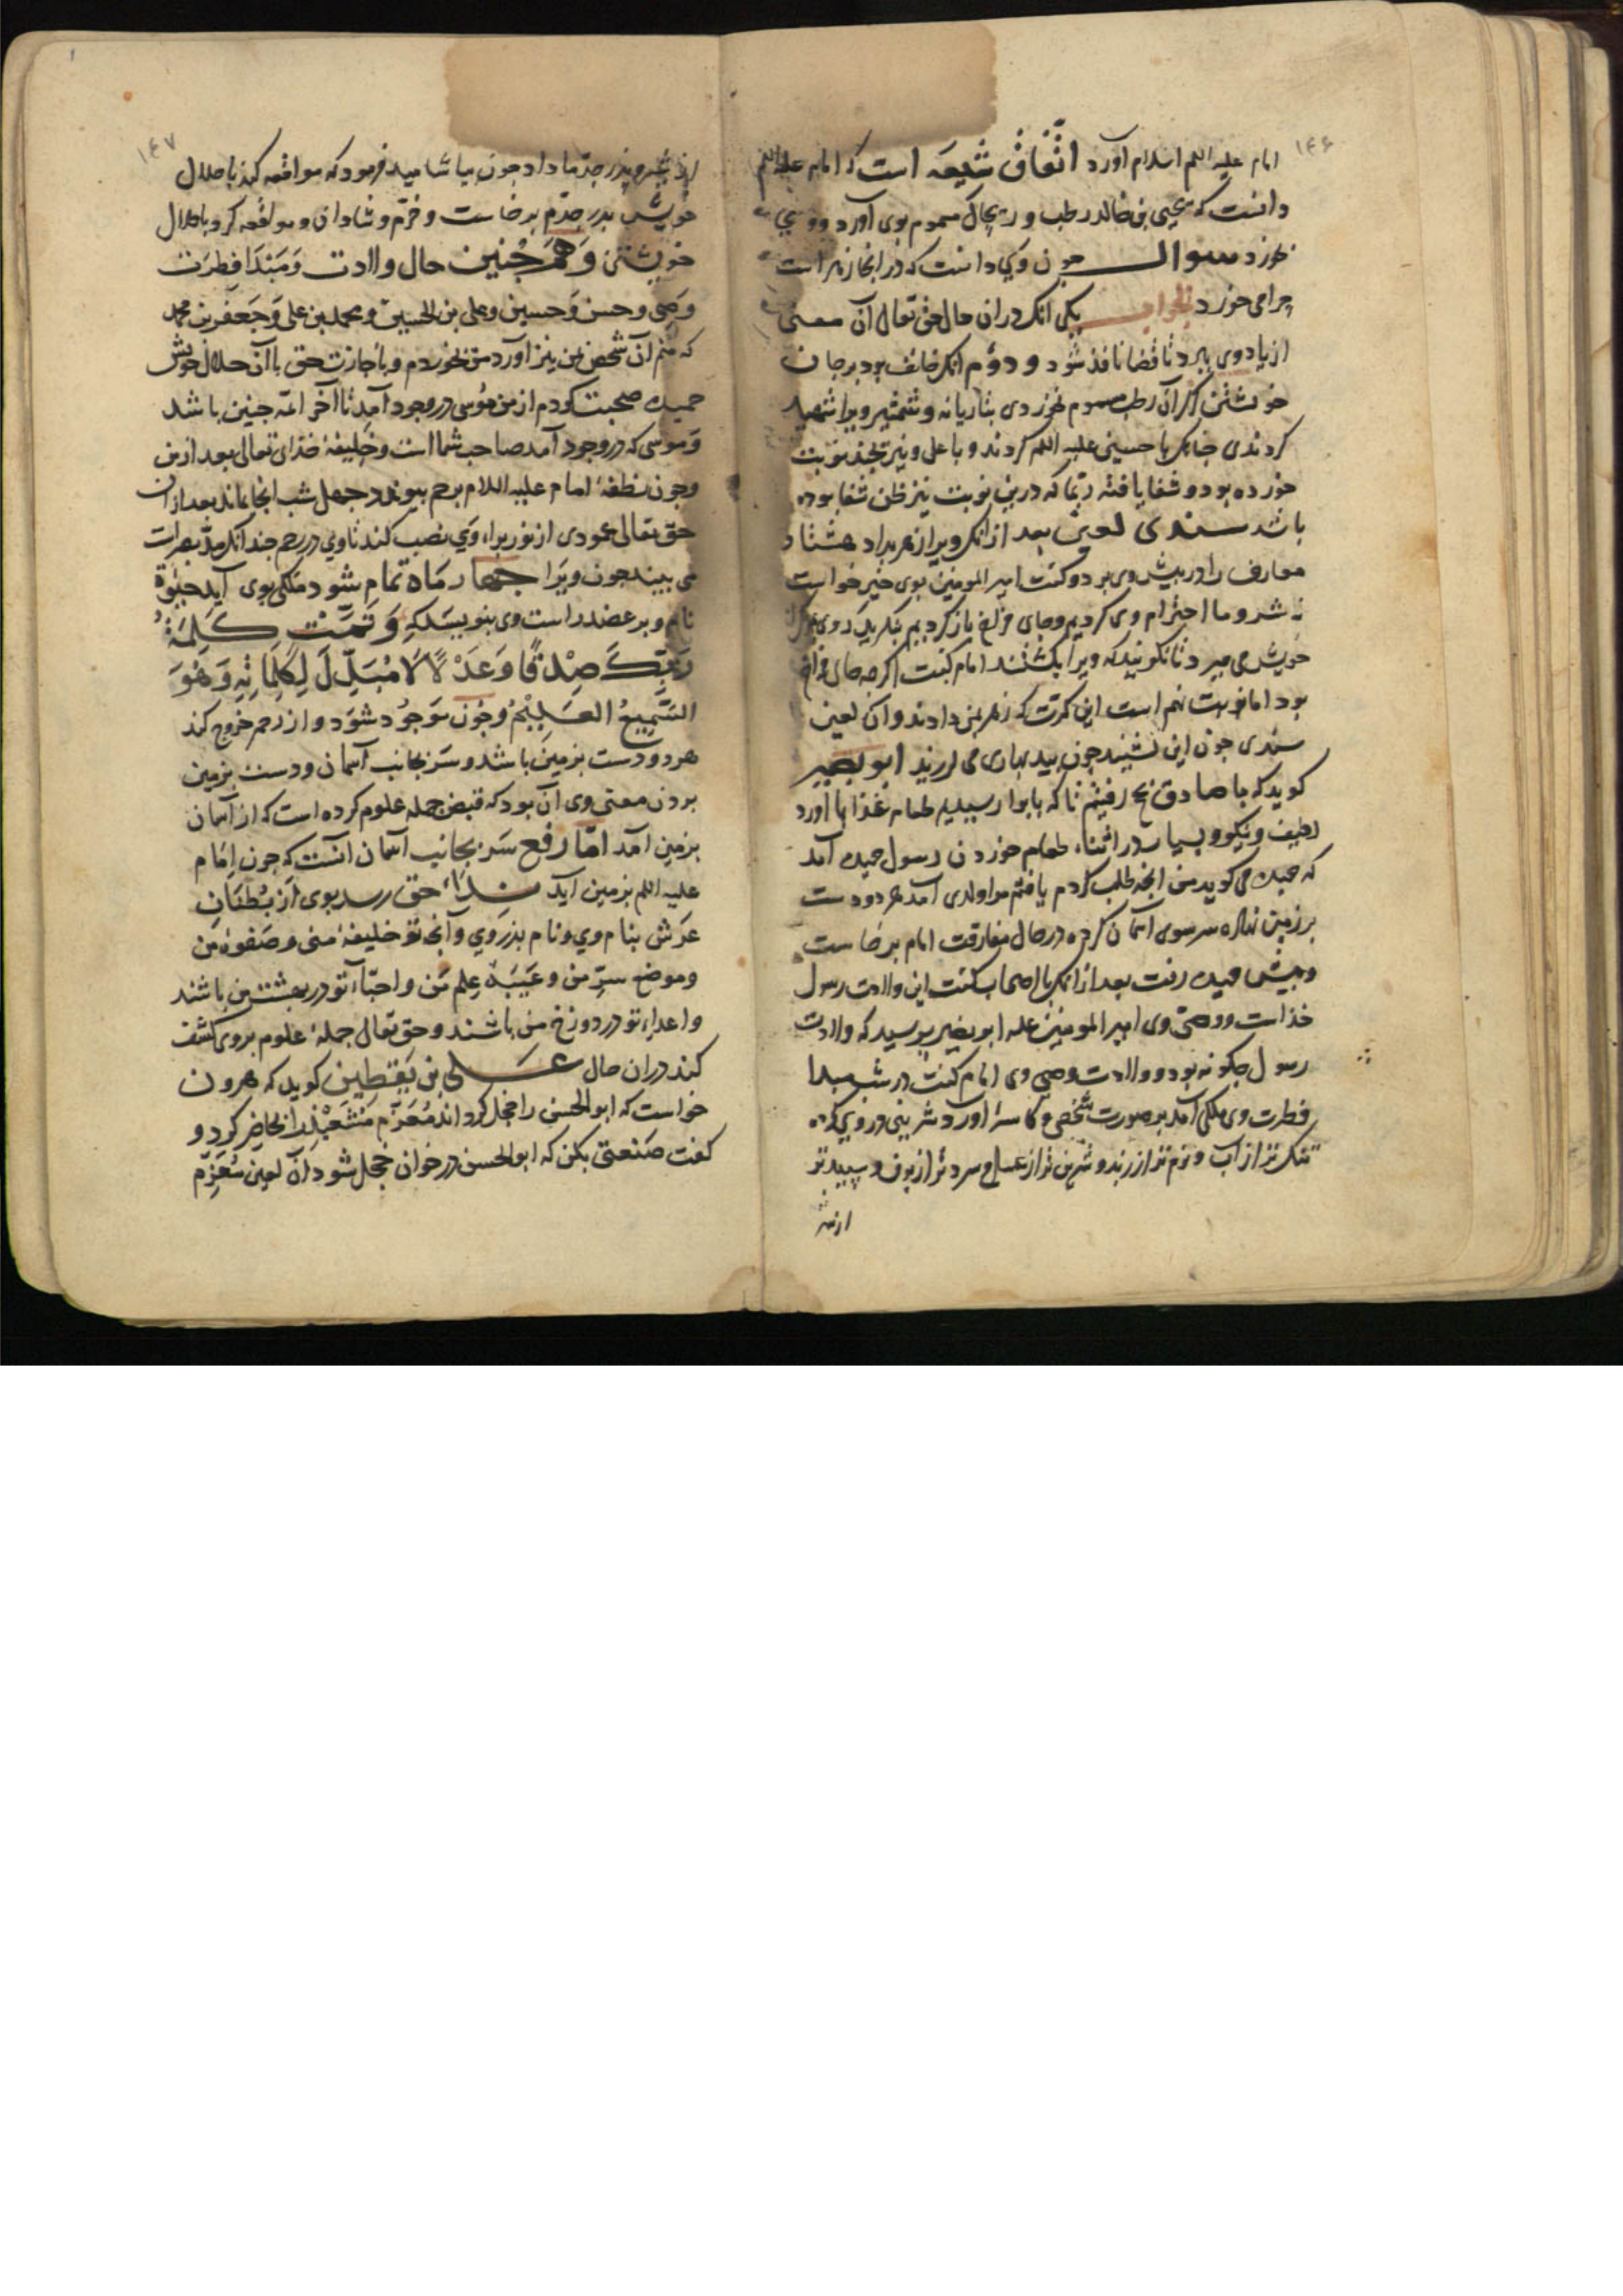 ۱۴۶
امام علیه السلم اسلام آورد اتّفاق شیعه است که امام علیه السلم
دانست که یحیی بن خالد رطب و ریحال مسموم بوی آورد و وی
بخورد سوال چون وی دانست که در انجا زهر است
چرا می خورد الجواب یکی انک در ان حال حق تعالی آن معنی
از یاد وی ببرد تا قضا نافذ شود و دوّم انک خائف بود بر جان
خویشتن اکر آن رطب مسموم نخوردی بتازیانه و شمشیر ویرا شهید
کردندی چنانک با حسین علیه السلم کردند و با علی و نیز بچند نوبت
خورده بود و شفا یافته ربّما که درین نوبت نیز ظن شفا بوده
باشد سندی لعین بعد از انک ویرا زهر بداد هشتاد
معارف را در پیش وی برد و کفت امیر المومنین بوی خیر خواست
نه شر و ما احترام وی کردیم و جای فراخ باز کردیم بنکرید که وی بمرک
خویش می میرد تا نکویید که ویرا بکشتند امام کفت اکر چه جای فراخ
بود اما نوبت نهم است این کرّت که زهر بمن دادند و ان لعین
سندی چون این بشنید چون بید بهاری می لرزید ابو بصیر
کوید که با صادق بحج رفتیم تا که بابوا رسیدیم طعام غذا با آورد
لطیف و نیکو و بسیار در اثناء طعام خوردن رسول حمیده آمد
که حمیده می کوید من انچه طلب کردم یافتم مرا ولدی آمد هر دو دست
بر زمین نهاده سر سوی اسمان کرده در حال مفارقت امام برخاست
و پیش حمیده رفت بعد از انک با اصحاب کفت این ولادت رسول
خداست و وصیّ وی امیر المومنین علیه ابو بصیر پرسید که ولادت
رسول چکونه بود و ولادت وصی وی امام کفت در شب مبدا
فطرت وی ملکی آمد بر صورت شخصی و کاسهٔ آورد شربتی در وی کرده
تنک تر از آب و نرم تر از زبد و شیرین تر از عسل و سرد تر از برف و سپید تر
از شیر
۱۴۷
از شیر و پدر جدّ ما داد چون بیاشامید فرمود که مواقعه کن با حلال
خویش پدر جدّم برخاست و خرّم و شادان و مواقعه کرد با حلال
خویشتن وَهَمچُنین حال ولادت وَمَبْدَا فِطرَت
وصی و حسن وَحسین و علی بن الحسین و محمد بن علی وَجَعفر بن محمد
که منم آن شخص بمن نیز آورد من بخوردم و باجازت حق با آن حلال خویش
حمیده صحبت کردم از من مُوسی در وجود آمد تا آخر ائمّه چنین باشد
وَموسی که در وجود آمد صاحب شما است و خلیفهٔ خدای تعالی بعد از من
وچون نطفهٔ امام علیه السلام برحم پیوندد چهل شب انجا بماند بعد از ان
حق تعالی عمودی از نور برای وی نصب کند تا وی در رحم چندانک مدّ بصر است
می بیند چون ویرا چهار مَاه تمام شود ملکی بوی آید حیوة
نام و بر عضد راست وی بنویسد که وَتَمَّتْ كَلِمَةُ
رَبِّكَ صِدْقًا وَعَدْلًا لَا مُبَدِّلَ لِكَلِمَاتِهِ وَهُوَ
السَّمِيعُ العَلِيْمُ وچون مَوجُود شوَد و از رحم خروج کند
هر دو دست بزمین باشد و سَر بجانب آسمان و دست بزمین
بردن معنی وی ان بود که قبض جمله علوم کرده است که از آسمان
بزمین آمد امّا رفع سَر بجانب آسمان انست که چون امَام
علیه السلم بزمین اید نداء حق رسد بوی از بُطْنَانِ
عرش بنام وي و نام پدر وي وآنچه تو خلیفهٔ منی و صَفوهٔ من
وموضع سرِّ من و عَیبَهٔ عِلم من و احبّاء تو در بهشت من باشند
و اعداء تو در دوزخ من باشند و حق تعالی جملهٔ علوم بر وی کشف
کند در ان حال علی بن یَقطین کوید که هرون
خواست که ابو الحسن را خجل کرداند مُعَزِّم مُتَشَعْبِذ را حاضر کرد و
کفت صَنعتی بکن که ابو الحسن در خوان خجل شود ان لعین مُعَزِّم